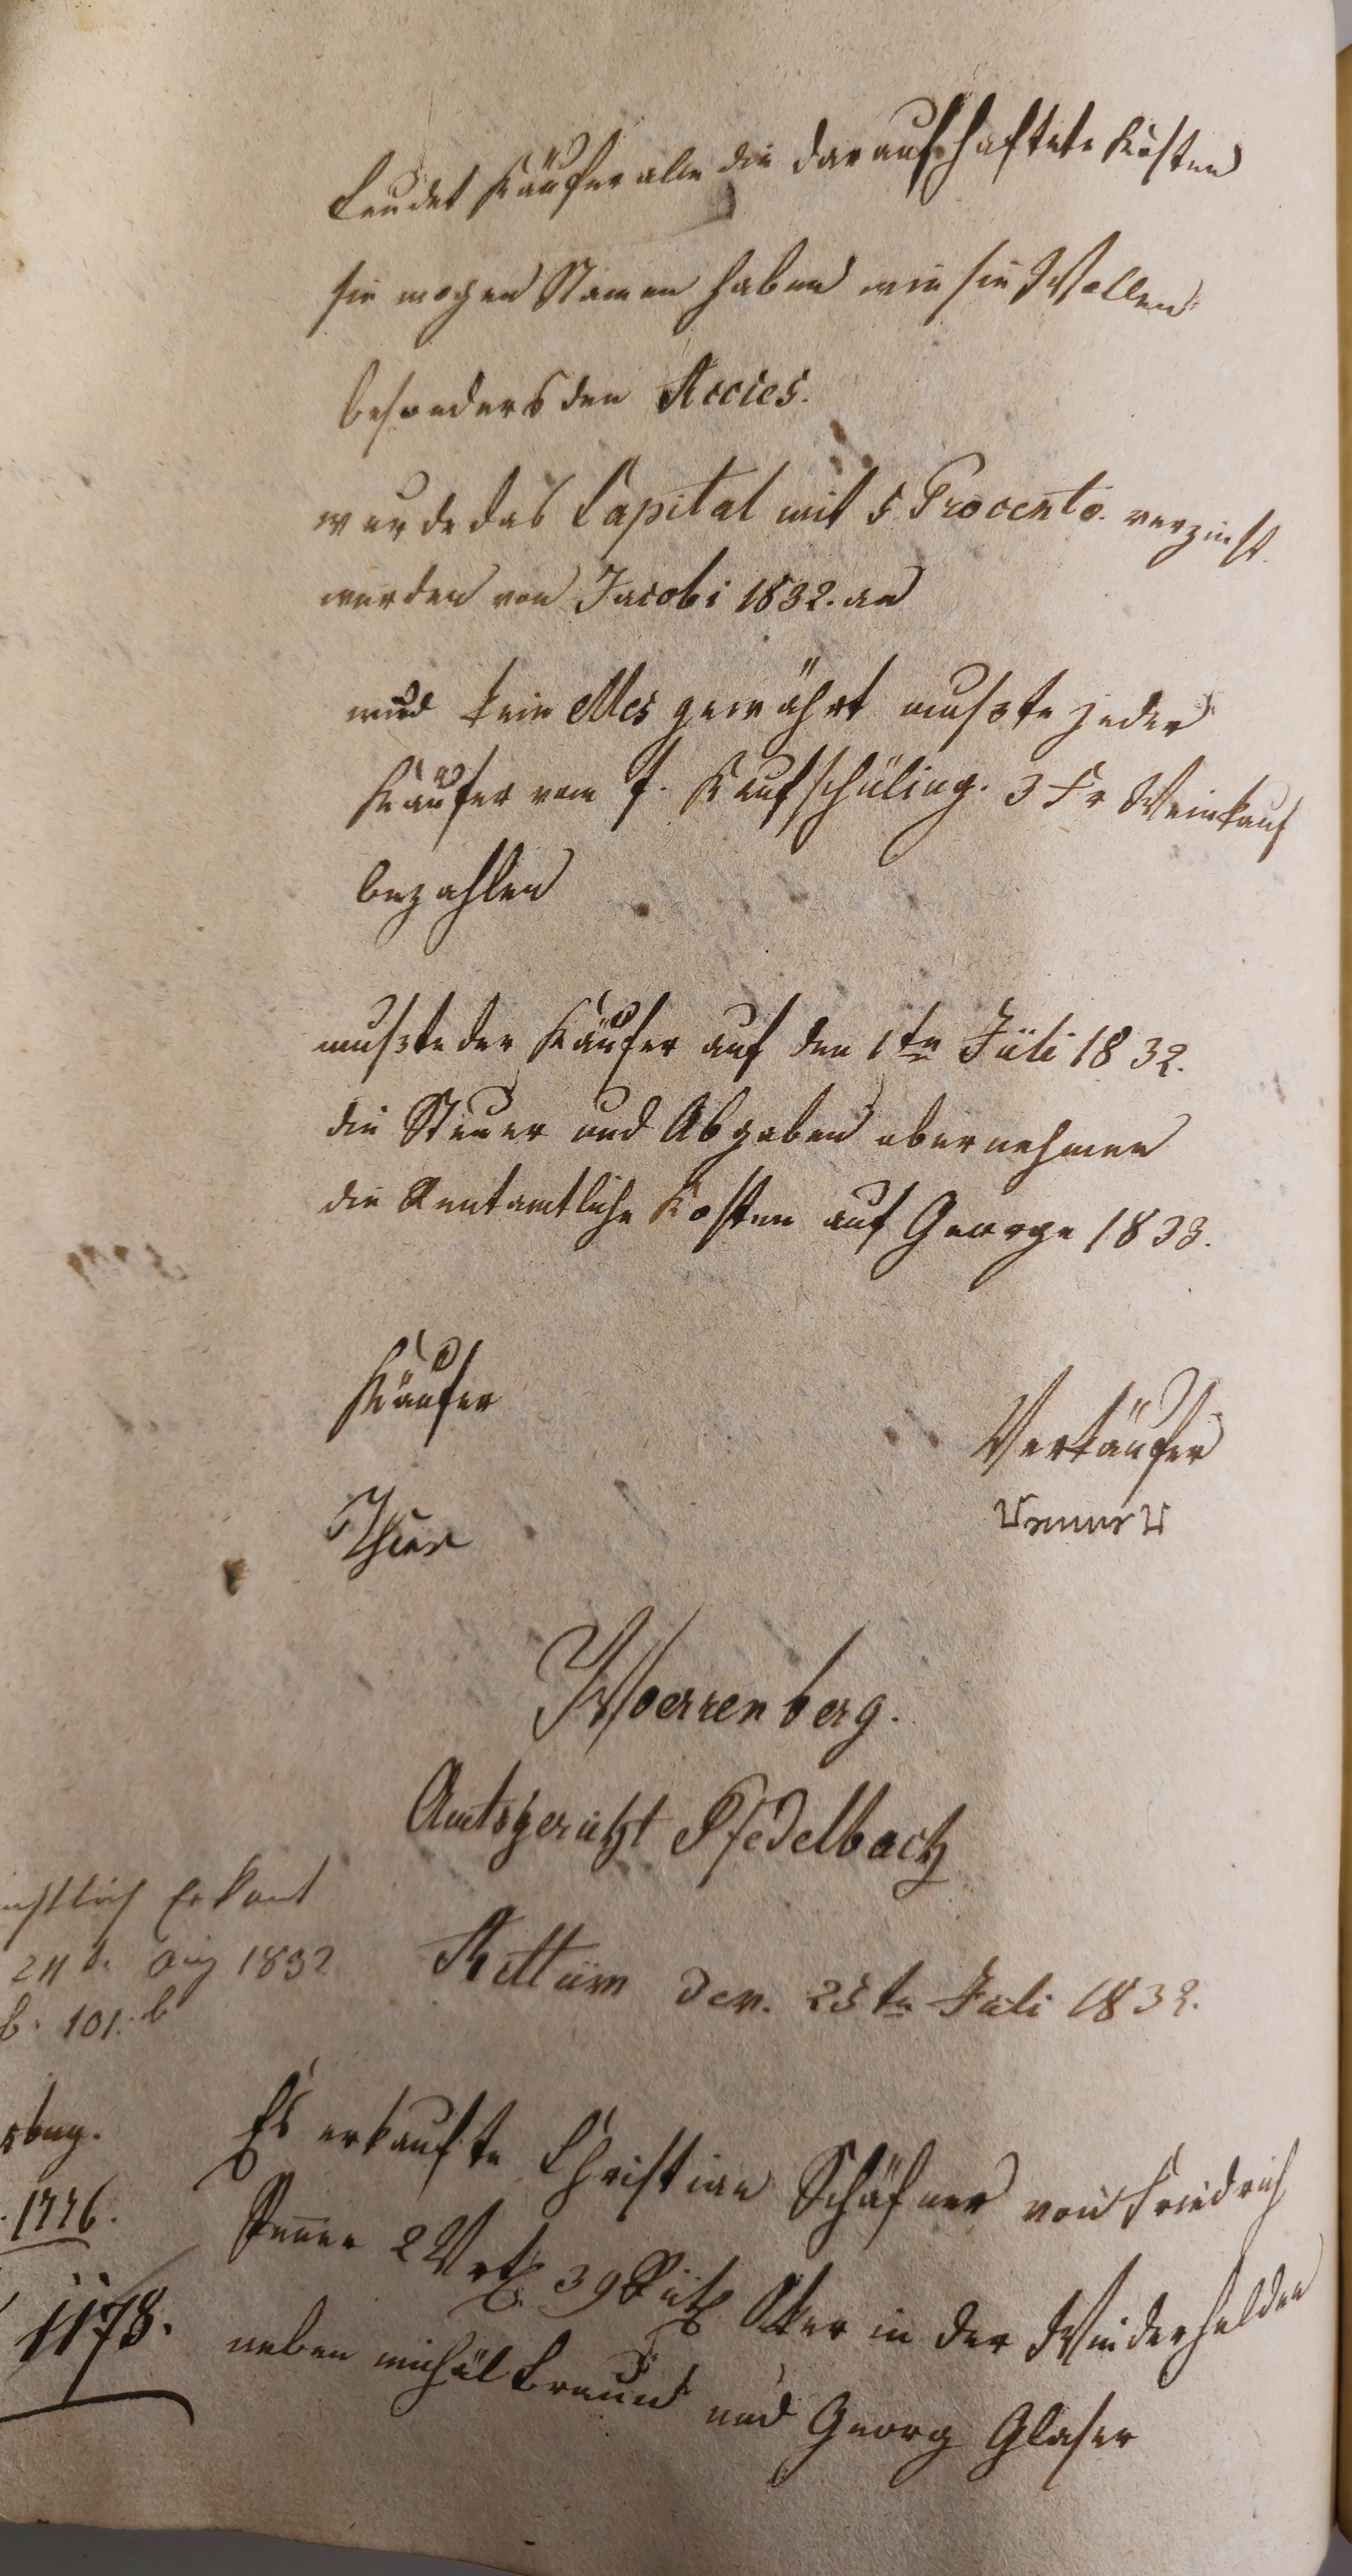 leudet Käufer alle die darauf haftete Kosten
sie mogen Namen haben wie sie Wollen
besonders den Accies.
wurde das Capital mit 5 Procento. verzinst
werden von Jacobi 1832. an
wird kein Mes gewährt muste jeder
Käufer vom f. Kaufschüling. 3 Fr Weinkauf
bezahlen
muste der Käufer auf den 1te Jüli 1832.
die Steuer und Abgaben abernehmen
die Rentamtliche Kosten auf George 1833.
Käufer
Verkäufer
Woerrenberg.
Amtsgericht Pfedelbach
Erkant
24 t. Aug 1832
b. 101. b
den. 25te Juli 1832.
1776.
1178.
Es erkaufte Christian Schäfner von Friedrich
2 Vrtl. 39 Rüth Aker in der Winderhalden
neben michäl Braun und Georg Glaser